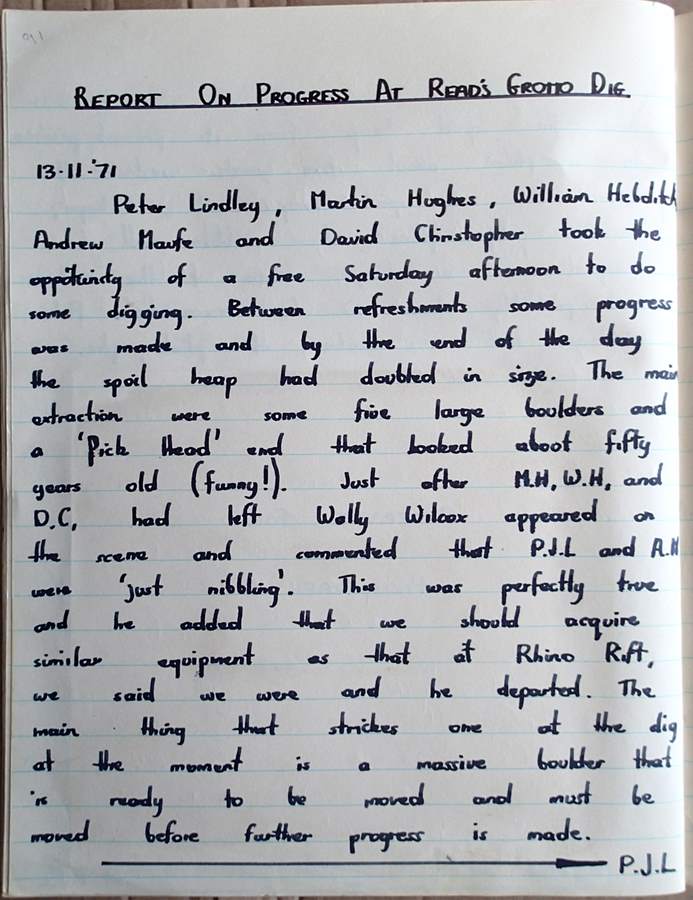 REPORT ON PROGRESS AT READ'S GROTTO DIG
13-11-'71
Peter Lindley, Martin Hughes, William Hebditch
Andrew Maufe and David Christopher took the
oppotunity of a free Saturday afternoon to do
some digging. Between refreshments some progress
was made and by the end of the day
the spoil heap had doubled in size. The main
extraction were some five large boulders and
a 'Pick Head' end that looked aboot fifty
years old (funny!). Just after M.H, W.H, and
D.C, had left Wally Wilcox appeared on
the scene and commented that P.J.L and A.M
were 'just nibbling'. This was perfectly true
and he added that we should acquire
similar equipment as that at Rhino Rift,
we said we were and he departed. The
main thing that strickes one at the dig
at the moment is a massive boulder that
is ready to be moved and must be
moved before further progress is made.
P.J.L